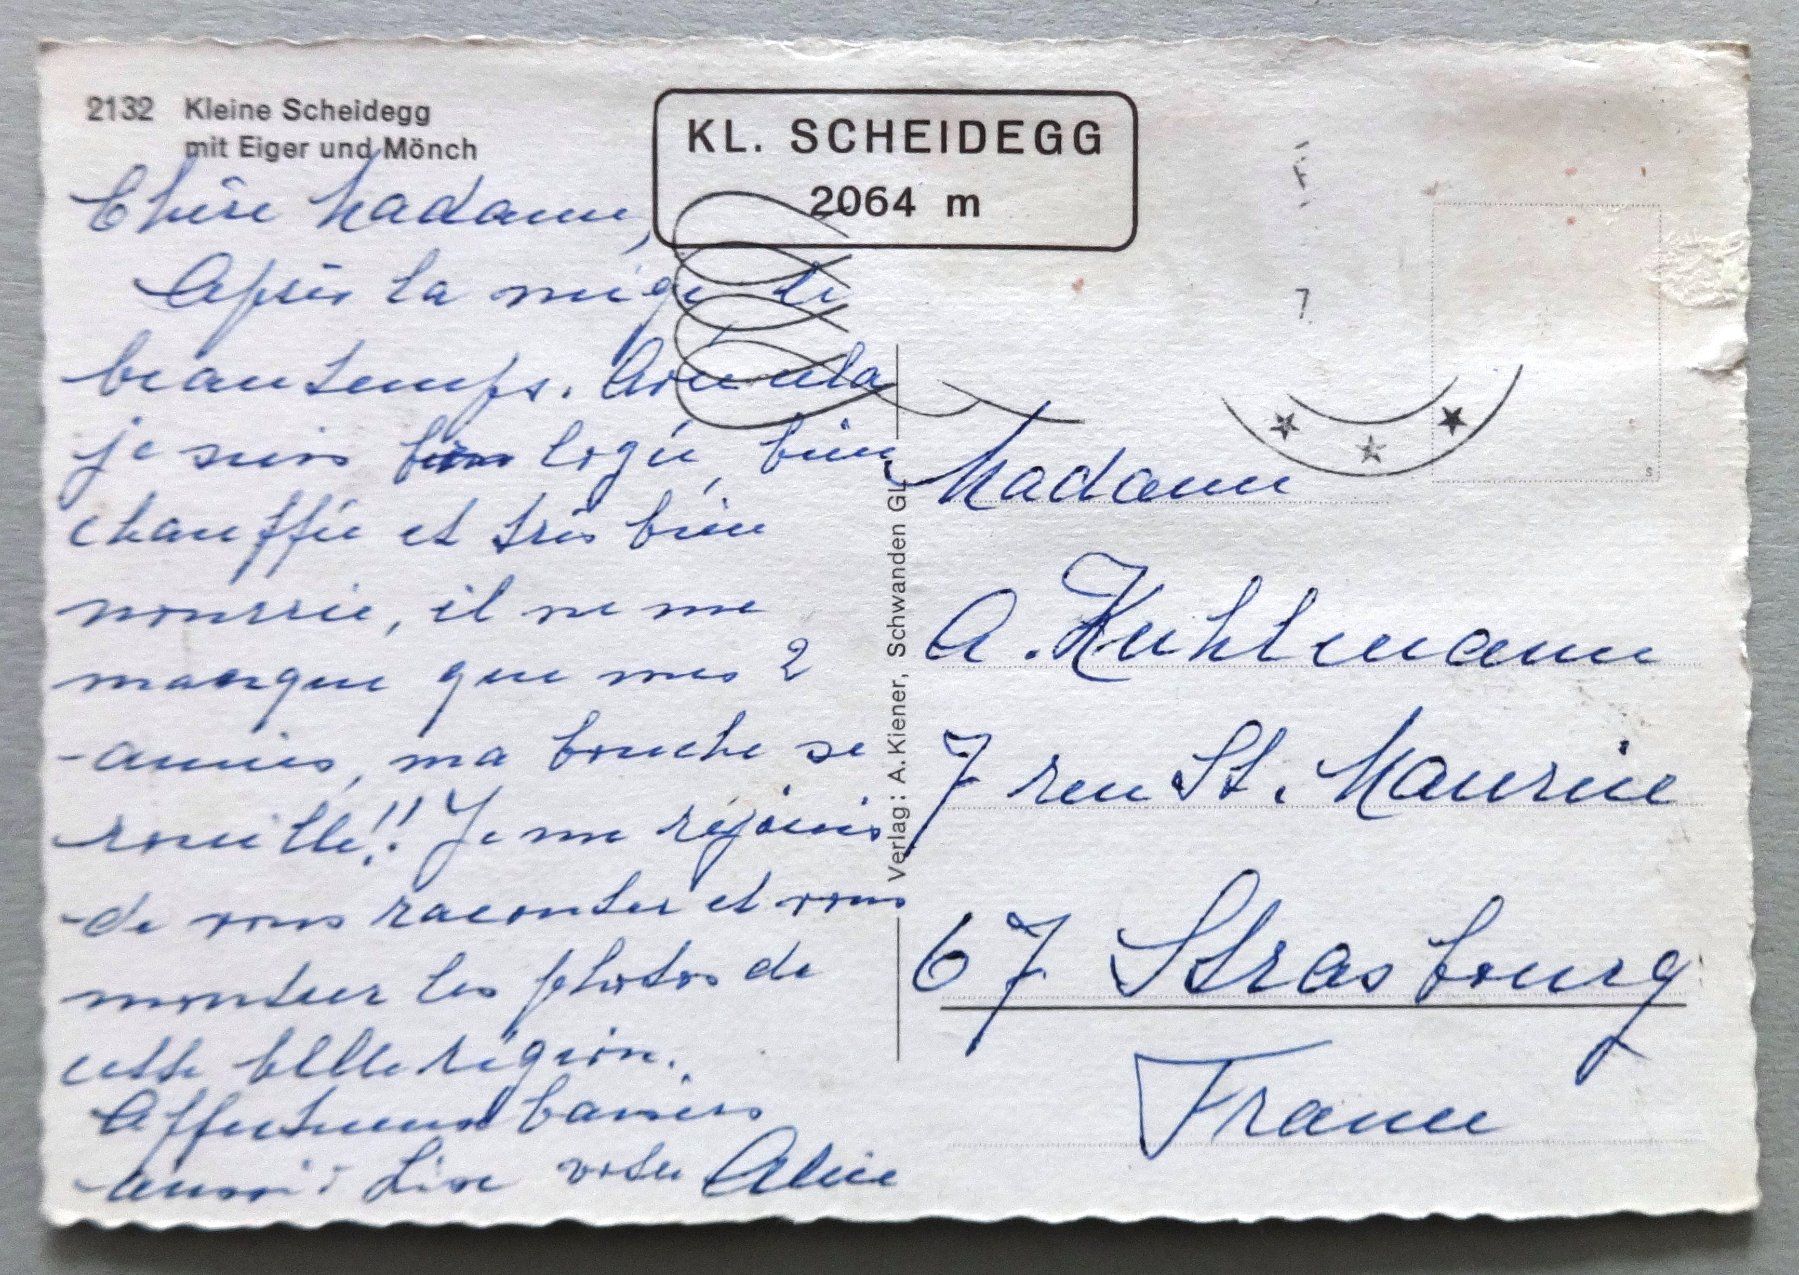 2132 Kleine Scheidegg
mit Eiger und Mönch
KL. SCHEIDEGG
2064 m
Chère Madame,
Après la neige le
beau temps.
je suis logée, bien
chauffée et très bien
nourrie, il ne me
manque que mes 2
amies, ma bouche se
rouille!! Je me réjouis
de vous raconter et vous
montrer les photos de
cette belle région.
Affectueux baisers
aussi à Lise votre Alice
Verlag: A. Kiener, Schwanden GL
Madame
A. Kuhlmann
7 rue St. Maurice
67 Strasbourg
France
7
S